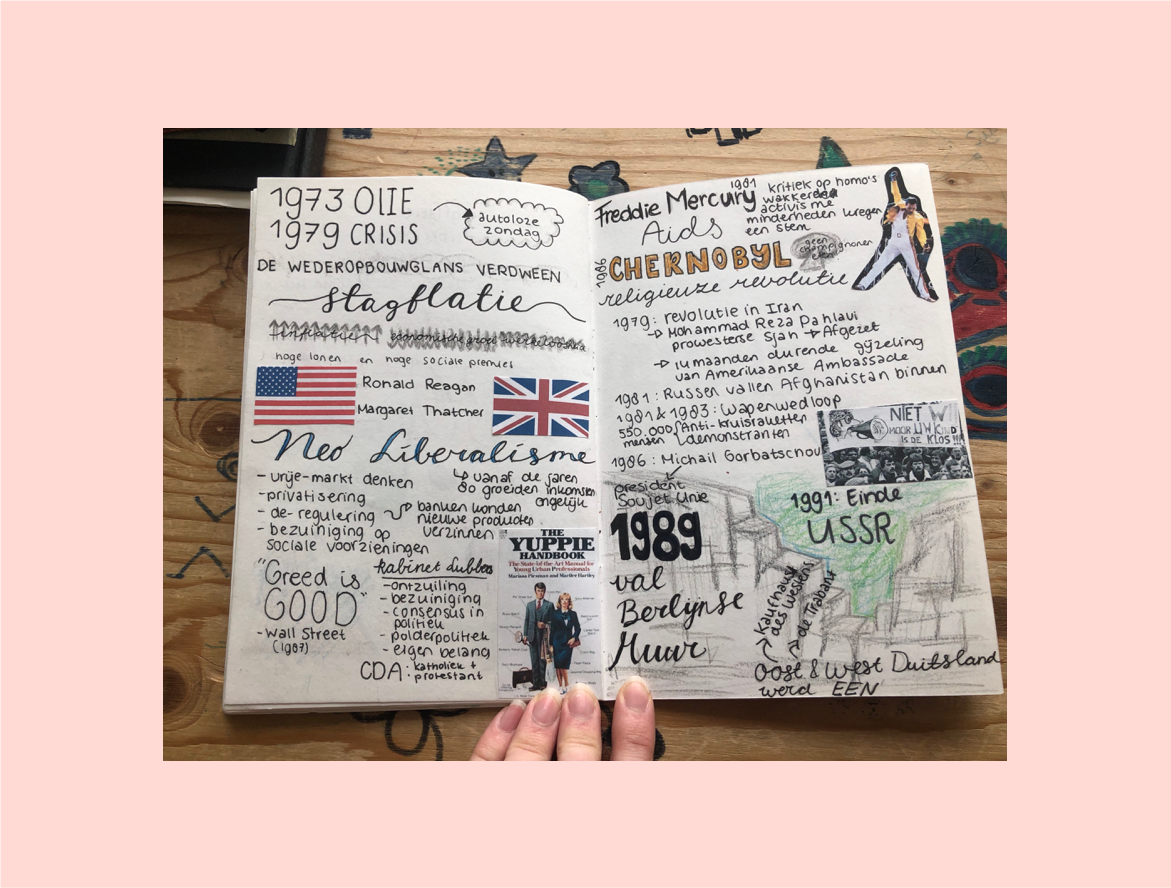 1973 OLIE
1979 CRISIS
autoloze
zondag
DE WEDEROPBOUWGLANS VERDWEEN
stagflatie
inflatie
hoge lonen en hoge sociale premies
Ronald Reagan
Margaret Thatcher
Neo Liberalisme
- vrije-markt denken
- privatisering
- de-regulering
- bezuiniging op
sociale voorzieningen
vanaf de jaren
80 groeiden inkomsten
ongelijk
banken konden
nieuwe producten
verzinnen
"Greed is
GOOD"
- Wall Street
(1987)
kabinet lubbers
- ontzuiling
- bezuiniging
- consensus in
politiek
- polderpolitiek
- eigen belang
CDA: katholiek +
protestant
THE
YUPPIE
HANDBOOK
The State-of-the Art Manual for
Young Urban Professionals
Marissa Piesman and Marilee Hartley
Freddie Mercury
Aids
1981
kritiek op homo's
wakkerde
activisme
minderheden kregen
een stem
1986
CHERNOBYL
geen
champignonen
eten
religieuze revolutie
1979: revolutie in Iran
Mohammad Reza Pahlavi
prowesterse sjah → Afgezet
14 maanden durende gijzeling
van Amerikaanse Ambassade
1981: Russen vallen Afghanistan binnen
1981 & 1983: Wapenwedloop
550.000 Anti-kruisraketten
mensen demonstranten
1986: Michail Gorbatschov
president
Sovjet Unie
NIET W
MOOR UW KIND
IS DE KLOS!!!
1991: Einde
USSR
1989
val
Berlijnse
Muur
Kaufhaus
des Westens
de Trabant
Oost & West Duitsland
werd EEN